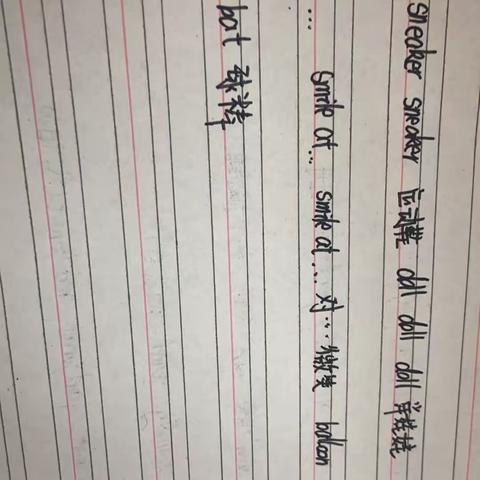 sneaker sneaker 运动鞋 doll doll doll 洋娃娃
... smile at... smile at ... 对...微笑 balloon
bat 球棒